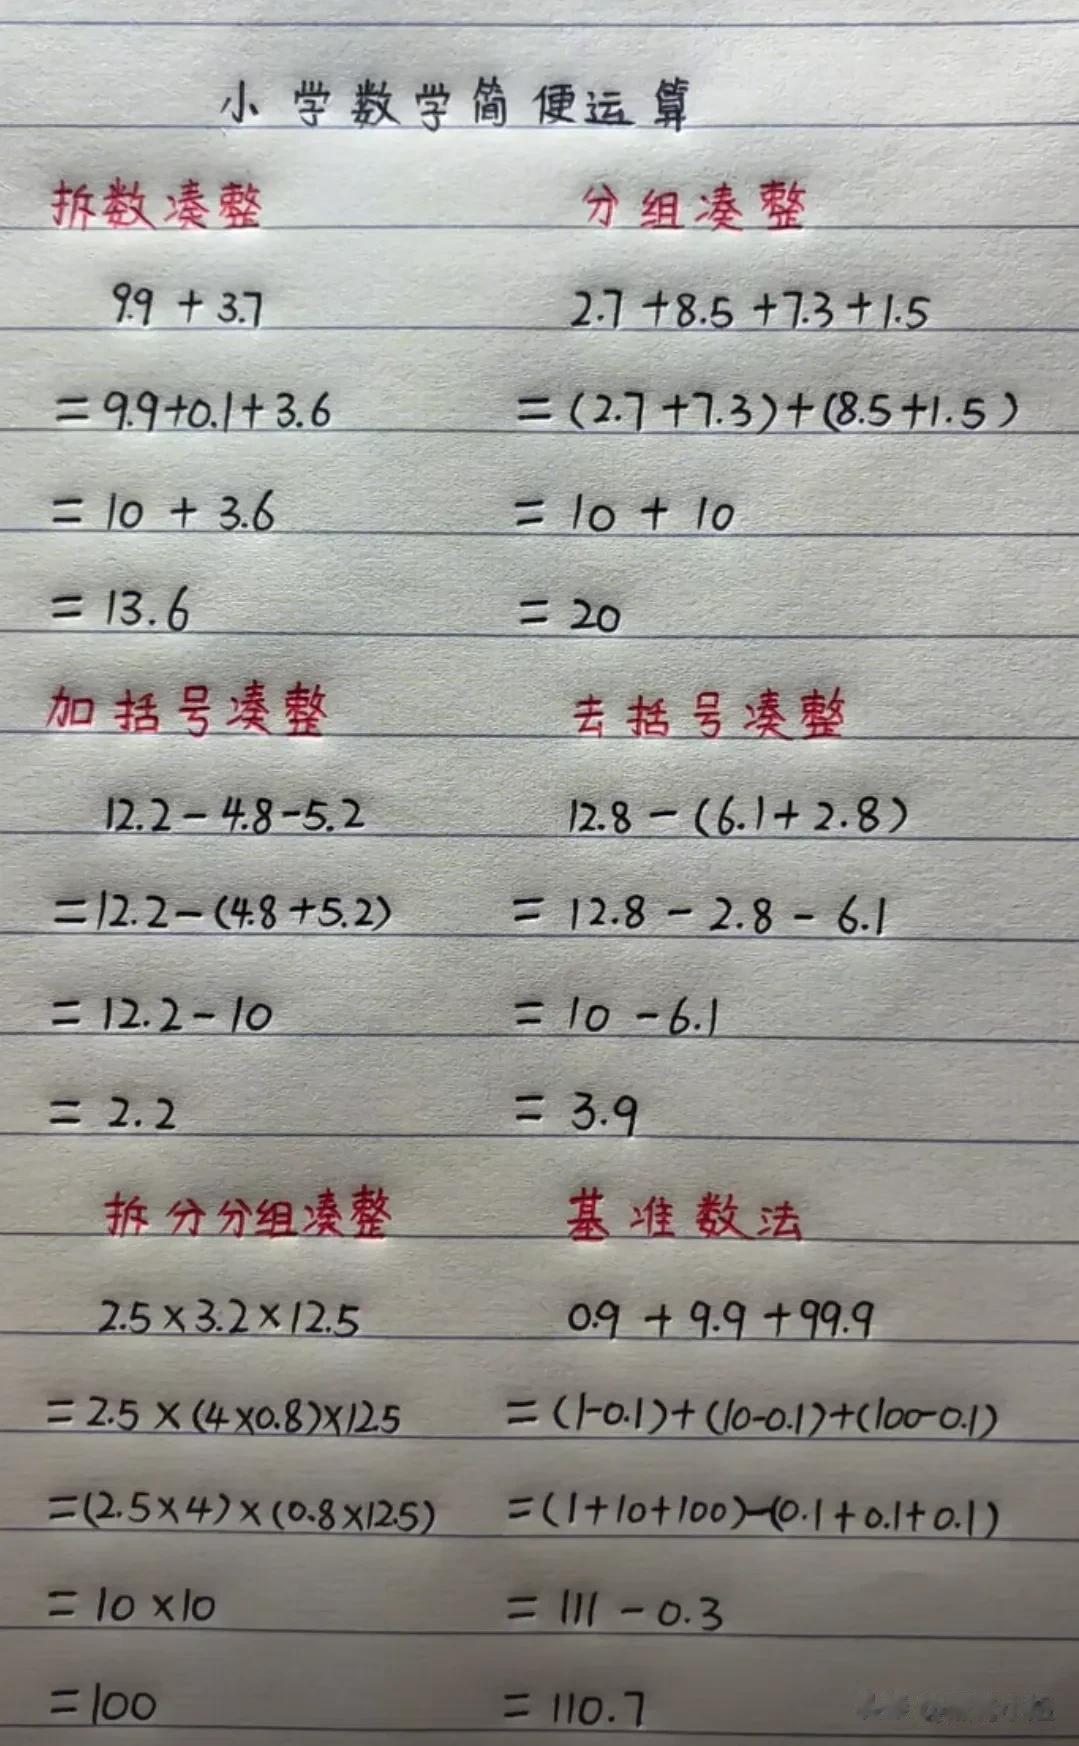 小学数学简便运算
拆数凑整
9.9 + 3.7
= 9.9+0.1+3.6
= 10 + 3.6
= 13.6
分组凑整
2.7+8.5+7.3+1.5
= (2.7+7.3)+(8.5+1.5)
= 10 + 10
= 20
加括号凑整
12.2-4.8-5.2
=12.2-(4.8+5.2)
= 12.2-10
= 2.2
去括号凑整
12.8-(6.1+2.8)
= 12.8-2.8-6.1
= 10-6.1
= 3.9
拆分分组凑整
2.5×3.2×12.5
=2.5×(4×0.8)×12.5
=(2.5×4)×(0.8×12.5)
= 10×10
=100
基准数法
0.9+9.9+99.9
=(1-0.1)+(10-0.1)+(100-0.1)
=(1+10+100)-(0.1+0.1+0.1)
= 111-0.3
= 110.7